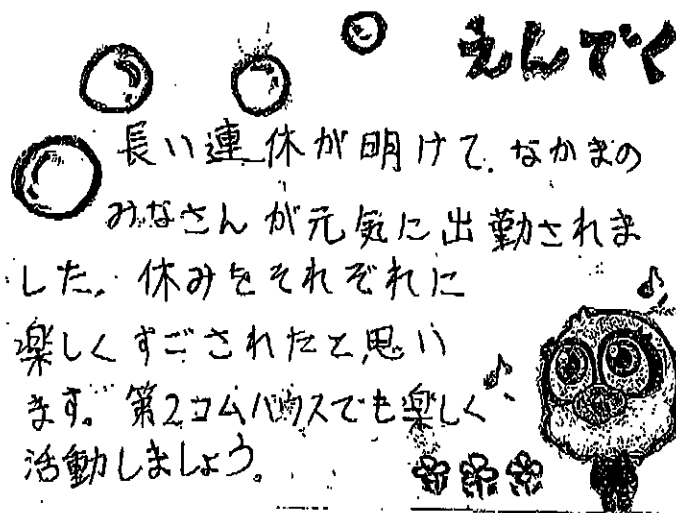 えんでく
長い連休が明けて、なかまの
みなさんが元気に出勤されま
した。休みをそれぞれに
楽しくすごされたと思い
ます。第2コムハウスでも楽しく
活動しましょう。